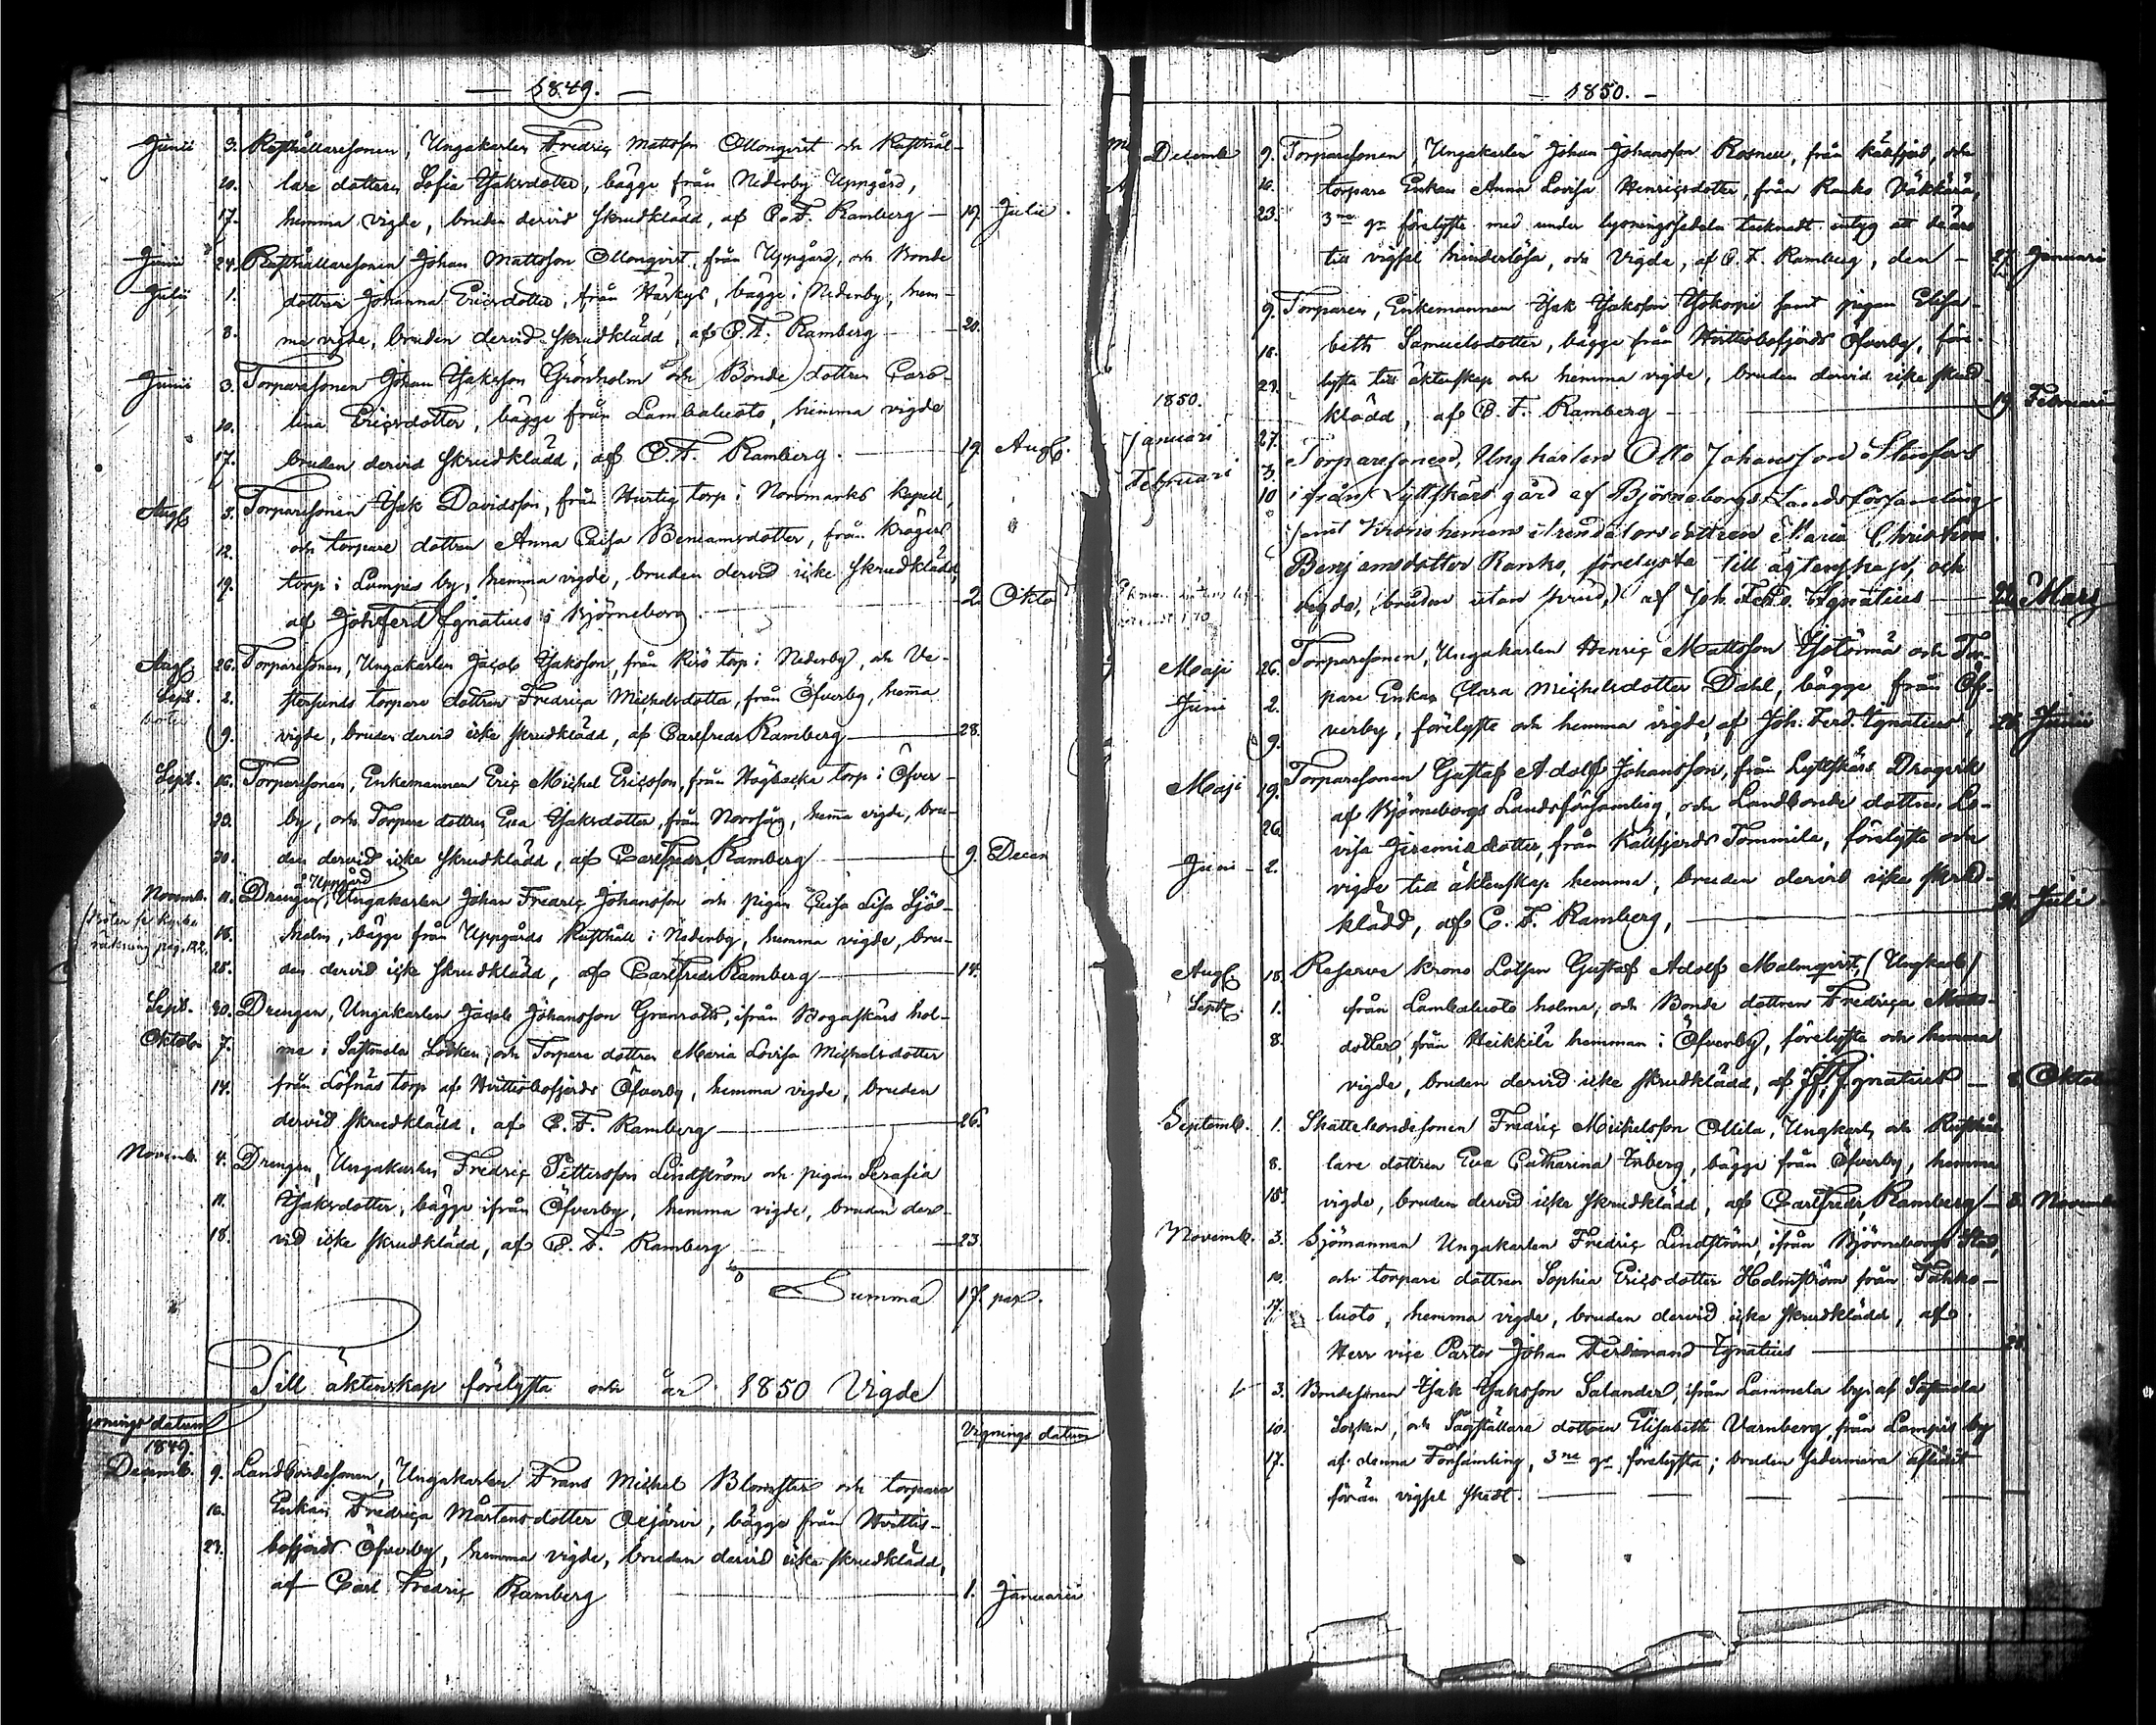 1849.
Junii 3. Rusthållaresonen, Ungakarlen Fredric Mattsson Ollonqvist och Rusthål-
10. lare dottern Sofia Isaksdotter, bägge från Nederby Uppgård,
17. hemma vigde, bruden dervid skrudklädd, af C. F. Ramberg — 19. Julii.
Junii 24. Rusthållaresonen Johan Mattsson Ollonqvist, från Uppgård, och Bonde
Julii 1. dottren Johanna Ericsdotter, från bägge i Nederby, hem-
8. ma vigde, bruden dervid skrudklädd, af C. F. Ramberg — 20.
Junii 3. Torparesonen Johan Isaksson Grönholm och Bonde dottren Caro-
10. lina Ericsdotter, bägge från Lambaluoto, hemma vigde
17. bruden dervid skrudklädd, af C. F. Ramberg. — 19. Aug.
Aug. 5. Torparesonen Isak Davidsson, från Hurtig torp i Norrmarks kapell,
12. och torpare dottren Anna Caisa Beniamsdotter, från
19. torp i Lampis by, hemma vigde, bruden dervid icke skrudklädd,
af Joh Ferd Ignatius i Björneborg. — 2. Oktob
Aug. 26. Torparesonen, Ungakarlen Jacob Isaksson, från torp i Nederby, och
Sept. 2. torpare dottren Fredrica Michelsdotter, från Öfverby, hemma
9. vigde, bruden dervid icke skrudklädd, af Carl Fredr Ramberg — 28.
Sept. 16. Torparesonen, Enkemannen Eric Michel Ericsson, från Högbacka torp i Öfver-
23. by, och Torpare dottren Eva Isaksdotter, från hemma vigde, bru-
30. den dervid icke skrudklädd, af Carl Fredr Ramberg — 9. Decem
å Uppgård
Novemb. 11. Drengen, Ungakarlen Johan Fredric Johansson och pigan Caisa Lisa Sjö-
räkning pag. 122.
18. holm, bägge från Uppgårds Rusthåll i Nederby, hemma vigde, bru-
25. den dervid icke skrudklädd, af Carl Fredr Ramberg — 14.
Sept. 30. Drengen, Ungakarlen Jacob Johansson Granroth, ifrån Bogaskärs hol-
Oktob. 7. me i Sastmola Socken, och Torpare dottren Maria Lovisa Michelsdotter
14. från Löfnäs torp af Hvittisbofjerds Öfverby, hemma vigde, bruden
dervid skrudklädd, af C. F. Ramberg — 26.
Novemb. 4. Drengen, Ungakarlen Fredric Pettersson Lindström och pigan Serafia
11. Isaksdotter, bägge ifrån Öfverby, hemma vigde, bruden der-
18. vid icke skrudklädd, af C. F. Ramberg — 23.
Summa 17. par.
Till äktenskap förelysta och år 1850 Vigde
datum Vignings datum
1849.
Decemb. 9. Landbondesonen, Ungakarlen Frans Michel Blomster och torpare
16. Enkan Fredrica Mårtensdotter Oxjärvi, bägge från Hvittis-
23. bofjerds Öfverby, hemma vigde, bruden dervid icke skrudklädd,
af Carl Fredric Ramberg — 1. Januarii
1850.
Decemb 9. Torparesonen, Ungakarlen Johan Johansson Rosnell, från och
16. torpare Enkan Anna Lovisa Henricsdotter, från Ranko
23. 3ne gr förelyste med under lysningssedeln tecknadt intyg att de äro
till vigsel hinderlösa, och Vigde, af C. F. Ramberg, den — 27. Januari
9. Torparen, Enkemannen Isak Isaksson samt pigan Elisa-
16. beth Samuelsdotter, bägge från Hvittisbofjerds Öfverby, före-
23. lyste till äktenskap och hemma vigde, bruden dervid icke skrud-
1850. klädd, af C. F. Ramberg — 19. Februari
Januari 27. Torparesonen, Ungkarlen Otto Johansson Stenfors
Februari 3.
10 ifrån Lyttskärs gård af Björneborgs Landsförsamling
samt Kronohemmans dottren Maria Christina
Benjamsdotter Ranko, förelysta till ägtenskap, och
vigde, (bruden utan skrud,) af Joh. Ferd. Ignatius — Mars
Maji 26. Torparesonen, Ungakarlen Henric Mattsson och Tor-
Juni 2. pare Enkan Clara Michelsdotter Dahl, bägge från Öf-
9. verby, förelyste och hemma vigde, af Joh. Ferd. Ignatius, Junii
Maji 19. Torparesonen Gustaf Adolf Johansson, från Lyttskärs Dragvik
af Björneborgs Landsförsamling, och Landbonde dottren Lo-
26. visa Jeremiædotter, från Källfjerds Tommila, förelyste och
Juni 2. vigde till äktenskap hemma, bruden dervid icke skrud-
klädd, af C. F. Ramberg, — 21. Juli.
Aug. 18. Reserve krono Lotsen Gustaf Adolf Malmqvist, (Ungkarl)
Sept. 1. från Lambaluoto holme, och Bonde dottren Fredrica Matts-
8. dotter, från Heikkilä hemman i Öfverby, förelyste och hemma
vigde, bruden dervid icke skrudklädd, af J. F. Ignatius — 8. Oktob
Septemb. 1. Skattebondesonen Fredric Michelsson Ollila, Ungkarl, och Rusthål-
8. lare dottren Eva Catharina Inberg, bägge från Öfverby, hemma
15. vigde, bruden dervid icke skrudklädd, af Carl Fredr Ramberg — 8. Novemb
Novemb. 3. Sjömannen Ungakarlen Fredric Lindström, ifrån Björneborgs Stad,
10. och torpare dottren Sophia Ericsdotter Holmström från Tahko-
17. luoto, hemma vigde, bruden dervid icke skrudklädd, af
Herr vice Pastor Johan Ferdinand Ignatius — 28.
3. Bondesonen Isak Isaksson Salander, ifrån Lammela by af Sastmola
10. Socken, och dottren Elisabeth Varnberg, från Lampis by
17. af denna Församling, 3ne gr förelysta; bruden sedermera aflidit
förän vigsel skedt. —